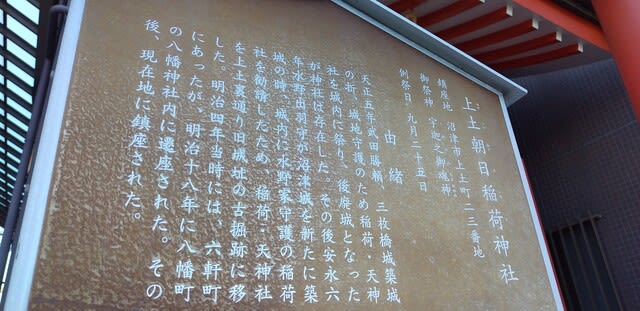 上土朝日稲荷神社
鎮座地 沼津市上土町二三番地
御祭神 宇迦之御魂神
例祭日 九月二十五日
由緒
天正五年武田勝頼、三枚橋城築城
の折、城地守護のため稲荷・天神
社を城内に祭り、後廃城となった
が神社は存在した。その後安永六
年水野出羽守が沼津城を新たに築
城の時、城内に水野家守護の稲荷
社を勧請したため、稲荷・天神社
を上土裏通り旧城址の古掘跡に移
した。明治四年当時には、六軒町
にあったが、明治十八年に八幡町
の八幡神社内に遷座された。その
後、現在地に鎮座された。